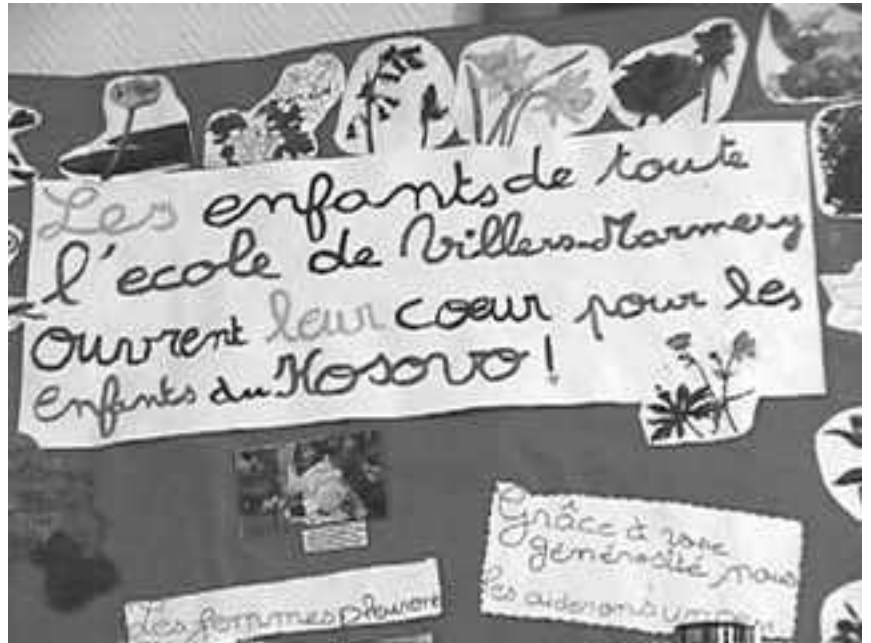 Les enfants de toute
l'ecole de Villers-Marmery
ouvrent leur coeur pour les
enfants du Kosovo !
Grâce à
générosité nous
les aiderons un
Les femmes pleurent